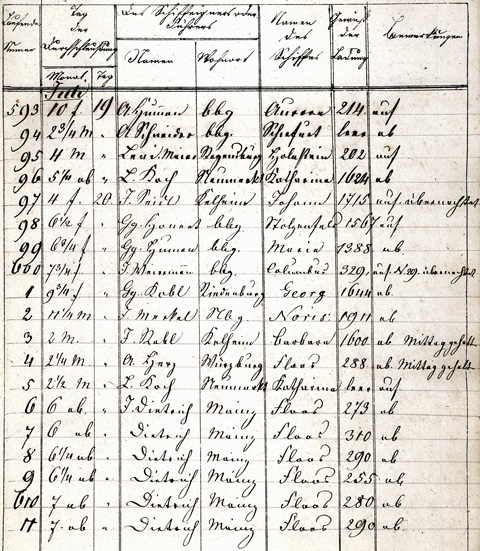 Laufende Nummer | Tag der Durchschleußung | Des Schiffeigners oder Führers | Namen des Schiffes | Gewicht der Ladung | Bemerkungen
Monat. Tag | Namen | Wohnort
Juli
593 10 f. 19 A Human bbg Aurora 214 auf
94 2 3/4 M " A Schneider bbg. leer ab
95 4 M " Levi Meier Regensburg Holnstein 202 auf
96 5 1/2 ab " L. Koch Neumarkt Katharina 1624 ab
97 4 f. 20. J. Seidl Kelheim Johann 1715 auf. übernachtet
98 6 1/2 f " Gg. bbg Stolzenfels 1567 auf
99 6 3/4 f " Gg. Human bbg. Maria 1388 ab
600 7 3/4 f " J Weismann bbg. Columbus 329, auf N 99. übernachtet
1 9 3/4 f. " Gg. Kobl Riedenburg Georg 1644 ab
2 11 1/4 M " J. Merkel Nbg. Noris 1911 ab
3 2 M. " J. Kobl Kelheim Barbara 1600 ab Mittag gehalt
4 2 1/4 M " A. Herz Würzburg Floos 288 ab. Mittag gehalt
5 2 1/2 M " L. Koch Neumarkt Katharina leer auf
6 6 ab. " J Dietrich Mainz Floos 273 ab
7 6 ab " Dietrich Mainz Floos 310 ab
8 6 1/4 ab " Dietrich Mainz Floos 290 ab
9 6 1/4 ab " Dietrich Mainz Floos 255 ab
610 7 ab " Dietrich Mainz Floos 280 ab
11 7. ab " Dietrich Mainz Floos 290 ab.